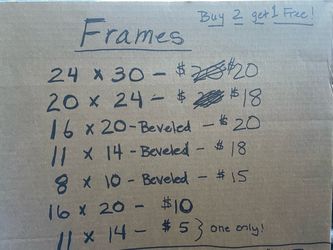 Buy 2 get 1 Free!
Frames
24 x 30 - $ $20
20 x 24 - $ $18
16 x 20 - Beveled - $20
11 x 14 - Beveled - $18
8 x 10 - Beveled - $15
16 x 20 - $10
11 x 14 - $5 } one only!